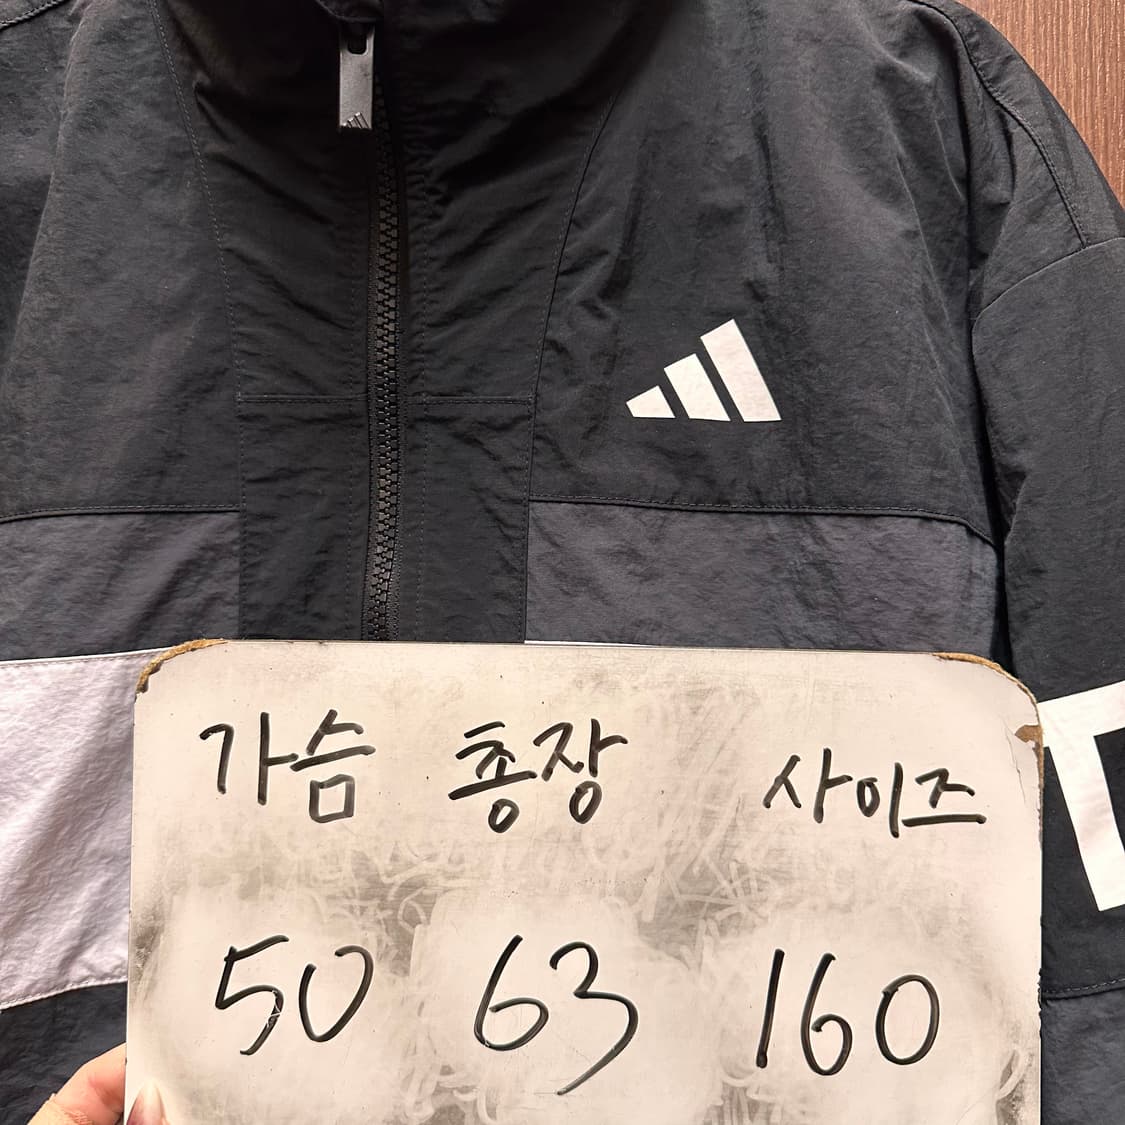 가슴 총장 사이즈
50 63 160